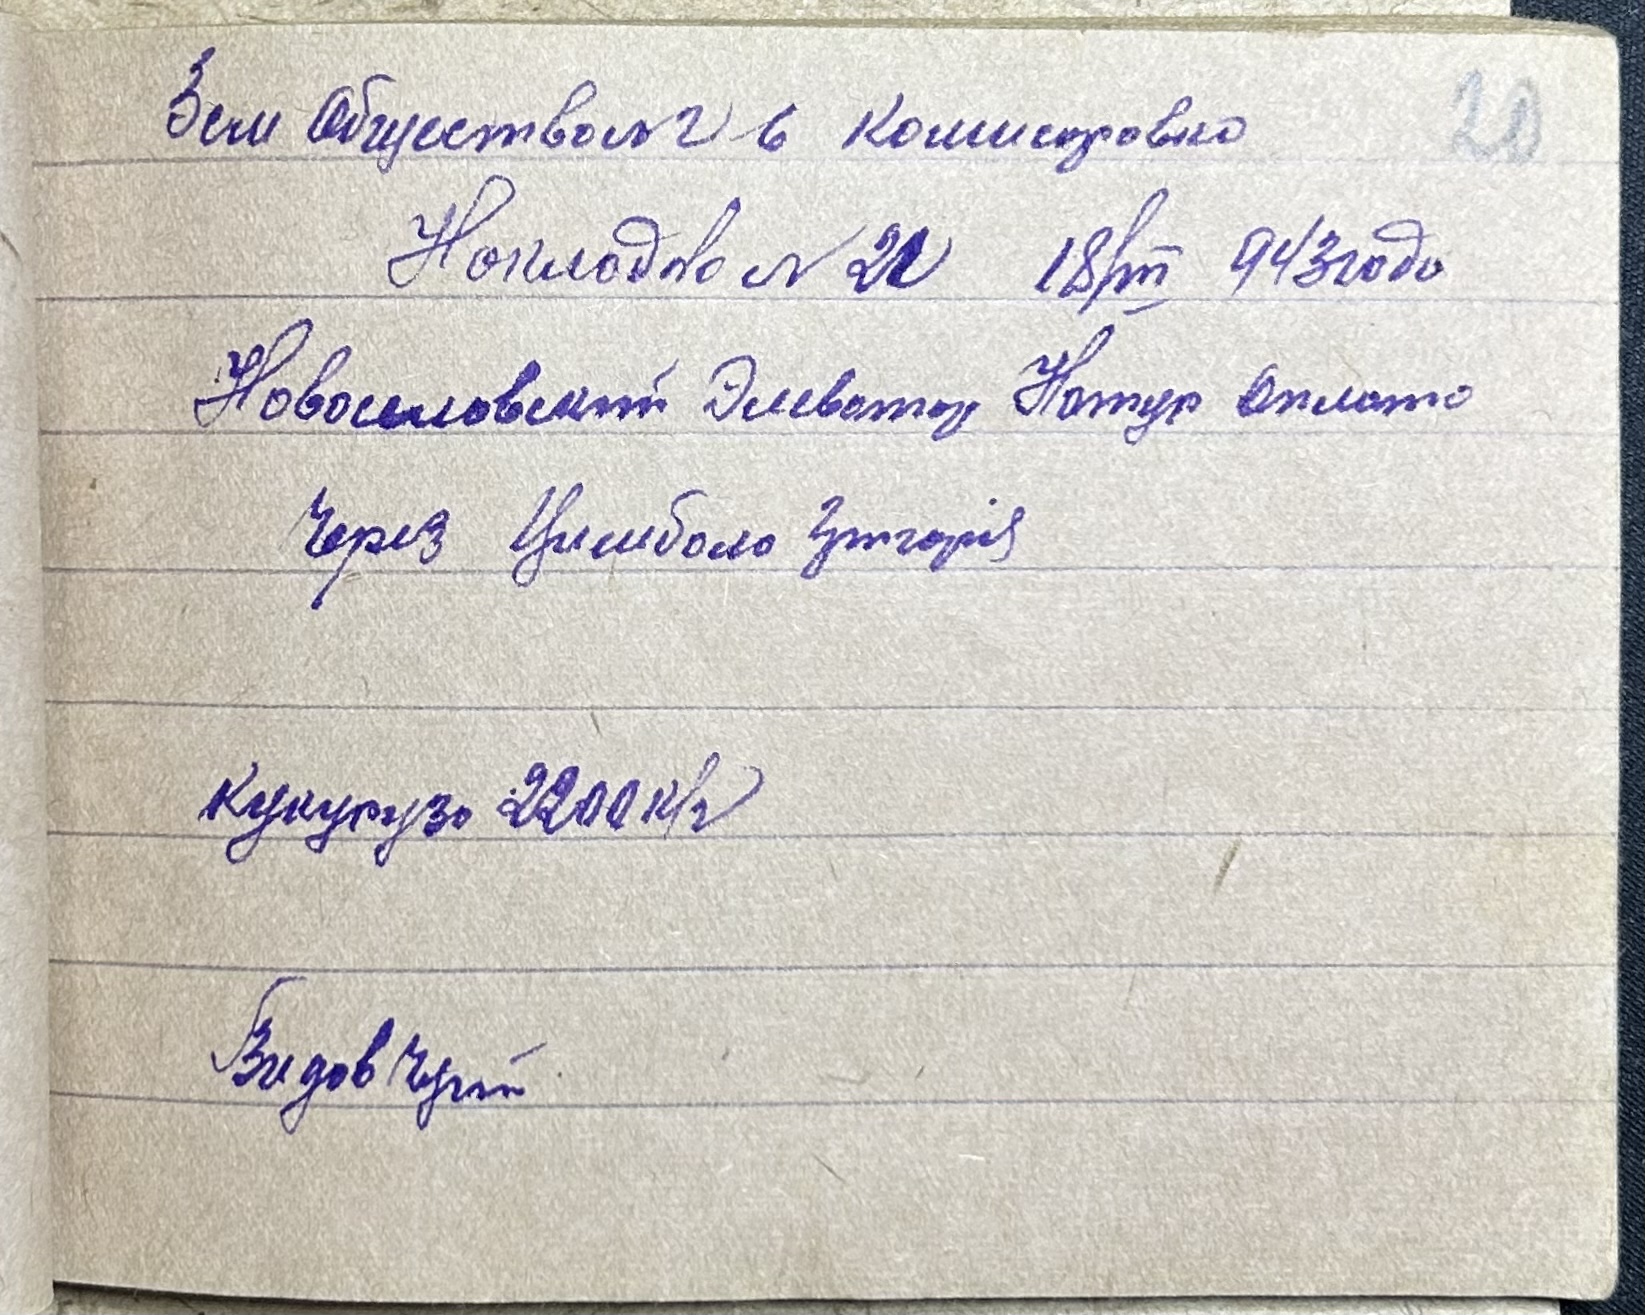 20
Зем Общество №2 в Комисаровка
Накладна № 21 18/VII 943 года
Новоселовский Элеватор Натур Оплата
Через Цимбала Григорія
Кукуруза 2200 к/г
Видов Чуй